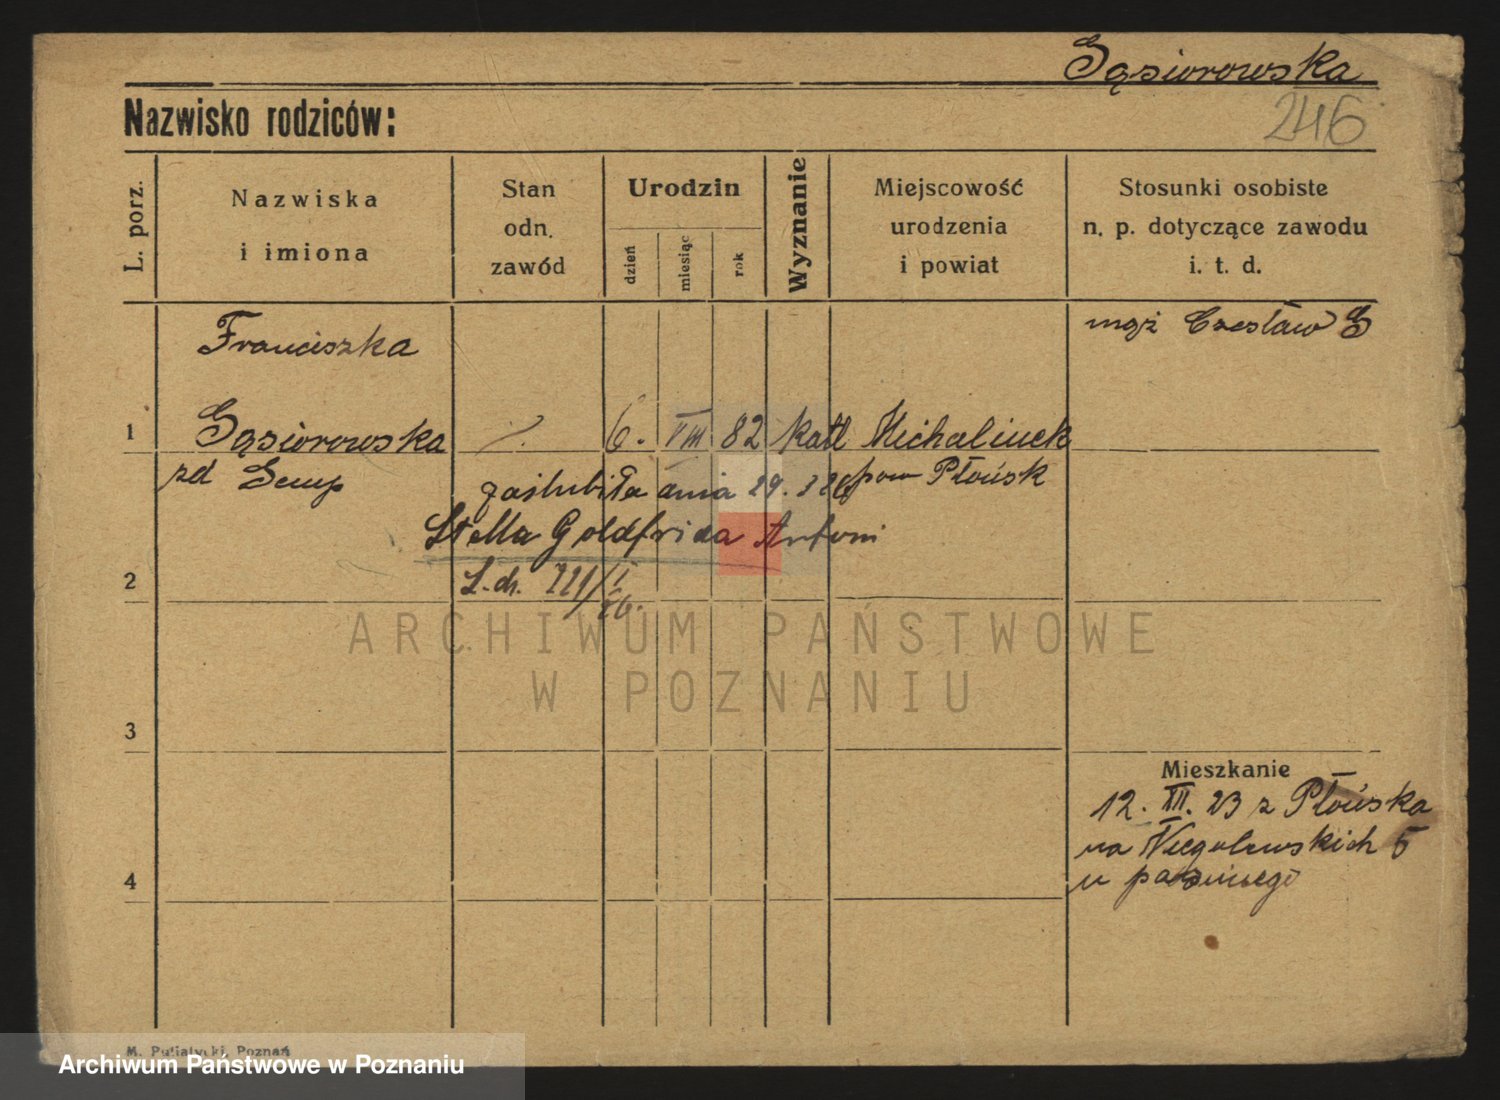 Gąsiorowska
Nazwisko rodziców:
246
L. porz.
Nazwiska
i imiona
Stan
odn.
zawód
Urodzin
dzień
miesiąc
rok
Wyznanie
Miejscowość
urodzenia
i powiat
Stosunki osobiste
n. p. dotyczące zawodu
i. t. d.
Franciszka
mąż Czesław G
1
Gąsiorowska
6. VIII 82 katl Michalinek
zd
pow Płońsk
zaślubiła dnia 29.
Stella Goldfrida Antoni
2
L. ch.
ARCHIWUM PAŃSTWOWE
W POZNANIU
3
Mieszkanie
12. XII. 23 z Płońska
na Niegolewskich 5
4
u
M. Putiatycki, Poznań
Archiwum Państwowe w Poznaniu